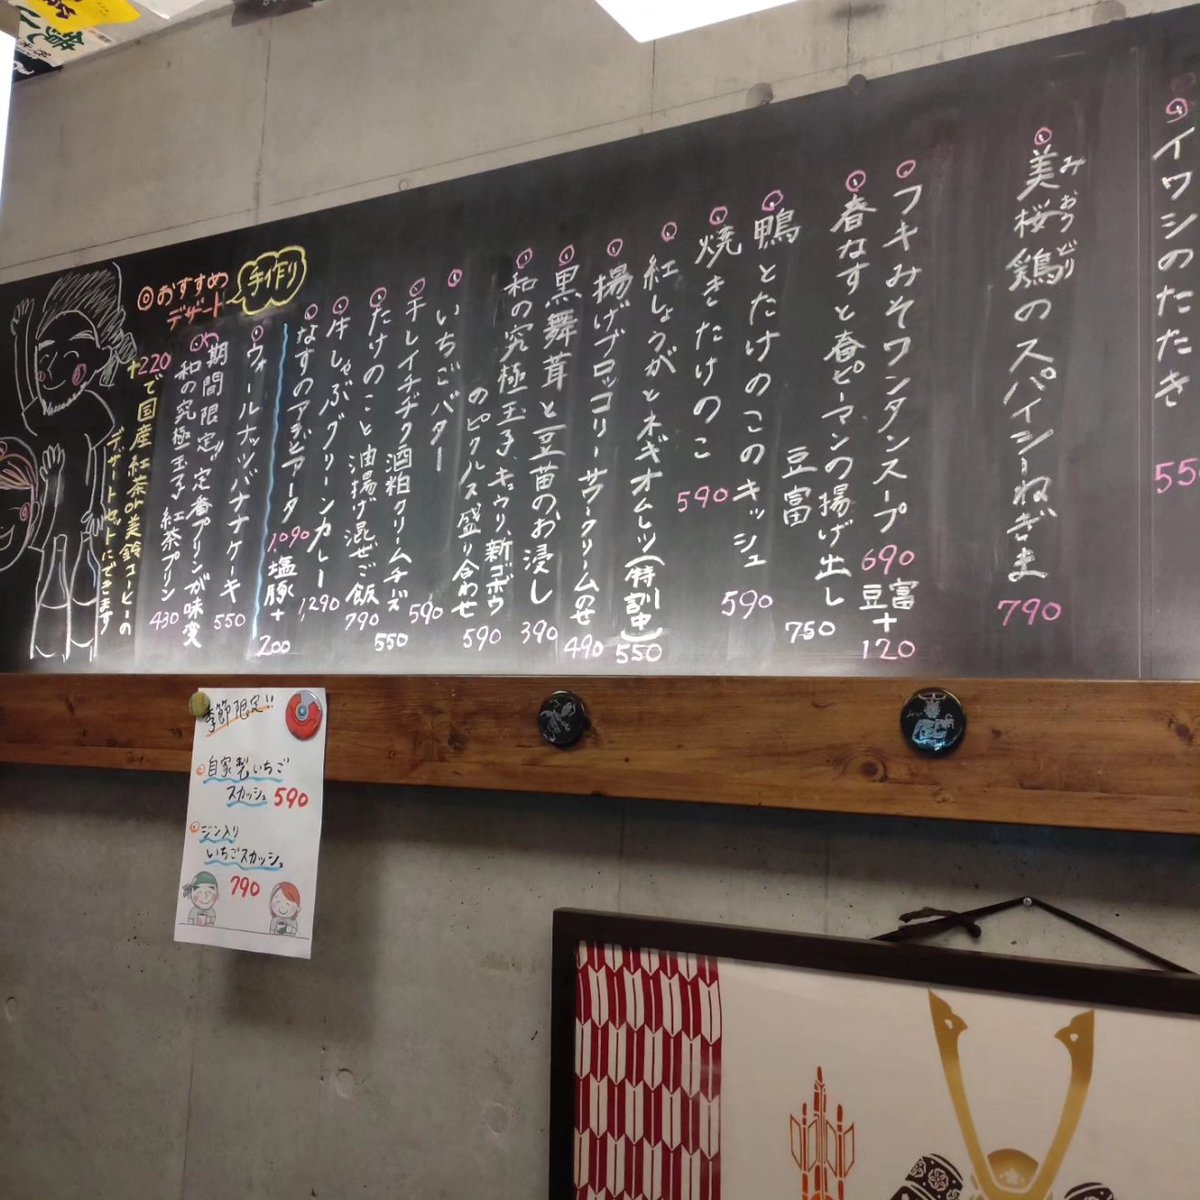 イワシのたたき
55
美桜鶏のスパイシーねぎま
みおうどり
790
フキみそワンタンスープ
690
豆富+
120
春なすと春ピーマンの揚げ出し
豆富
750
鴨とたけのこのキッシュ
590
焼きたけのこ
590
紅しょうがとネギオムレツ(特訓中)
550
揚げブロッコリーサワークリームのせ
490
黒舞茸と豆苗のお浸し
390
和の究極玉子、キュウリ、新ゴボウ
のピクルス盛り合わせ
590
いちごバター
590
干しイチヂク酒粕クリームチーズ
550
たけのこと油揚げ混ぜご飯
790
牛しゃぶグリーンカレー
1,290
なすのアラビアータ
1,090
塩豚+
200
おすすめ
デザート
手作り
ウォールナッツバナナケーキ
550
期間限定"定番プリンが味変
和の究極玉子 紅茶プリン
430
+220で国産紅茶or美鈴コーヒーの
デザートセットにできます
季節限定!!
自家製いちご
スカッシュ 590
ジン入り
いちごスカッシュ
790